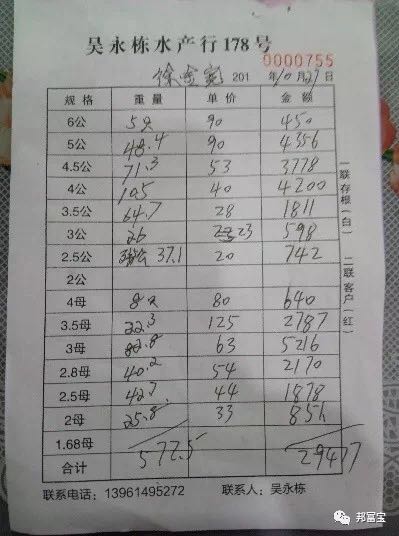 吴永栋水产行178号
0000755
徐宝宽 201 年10月27日
规格 重量 单价 金额
6公 5.0 90 450
5公 48.4 90 4356
4.5公 71.3 53 3778
4公 105 40 4200
3.5公 64.7 28 1811
3公 26 23 598
2.5公 37.1 20 742
2公
4母 8.0 80 640
3.5母 22.3 125 2787
3母 82.8 63 5216
2.8母 40.2 54 2170
2.5母 42.7 44 1878
2母 25.8 33 851
1.68母
合计 577.5 29477
一联存根(白)
二联客户(红)
联系电话:13961495272 联系人:吴永栋
邦富宝